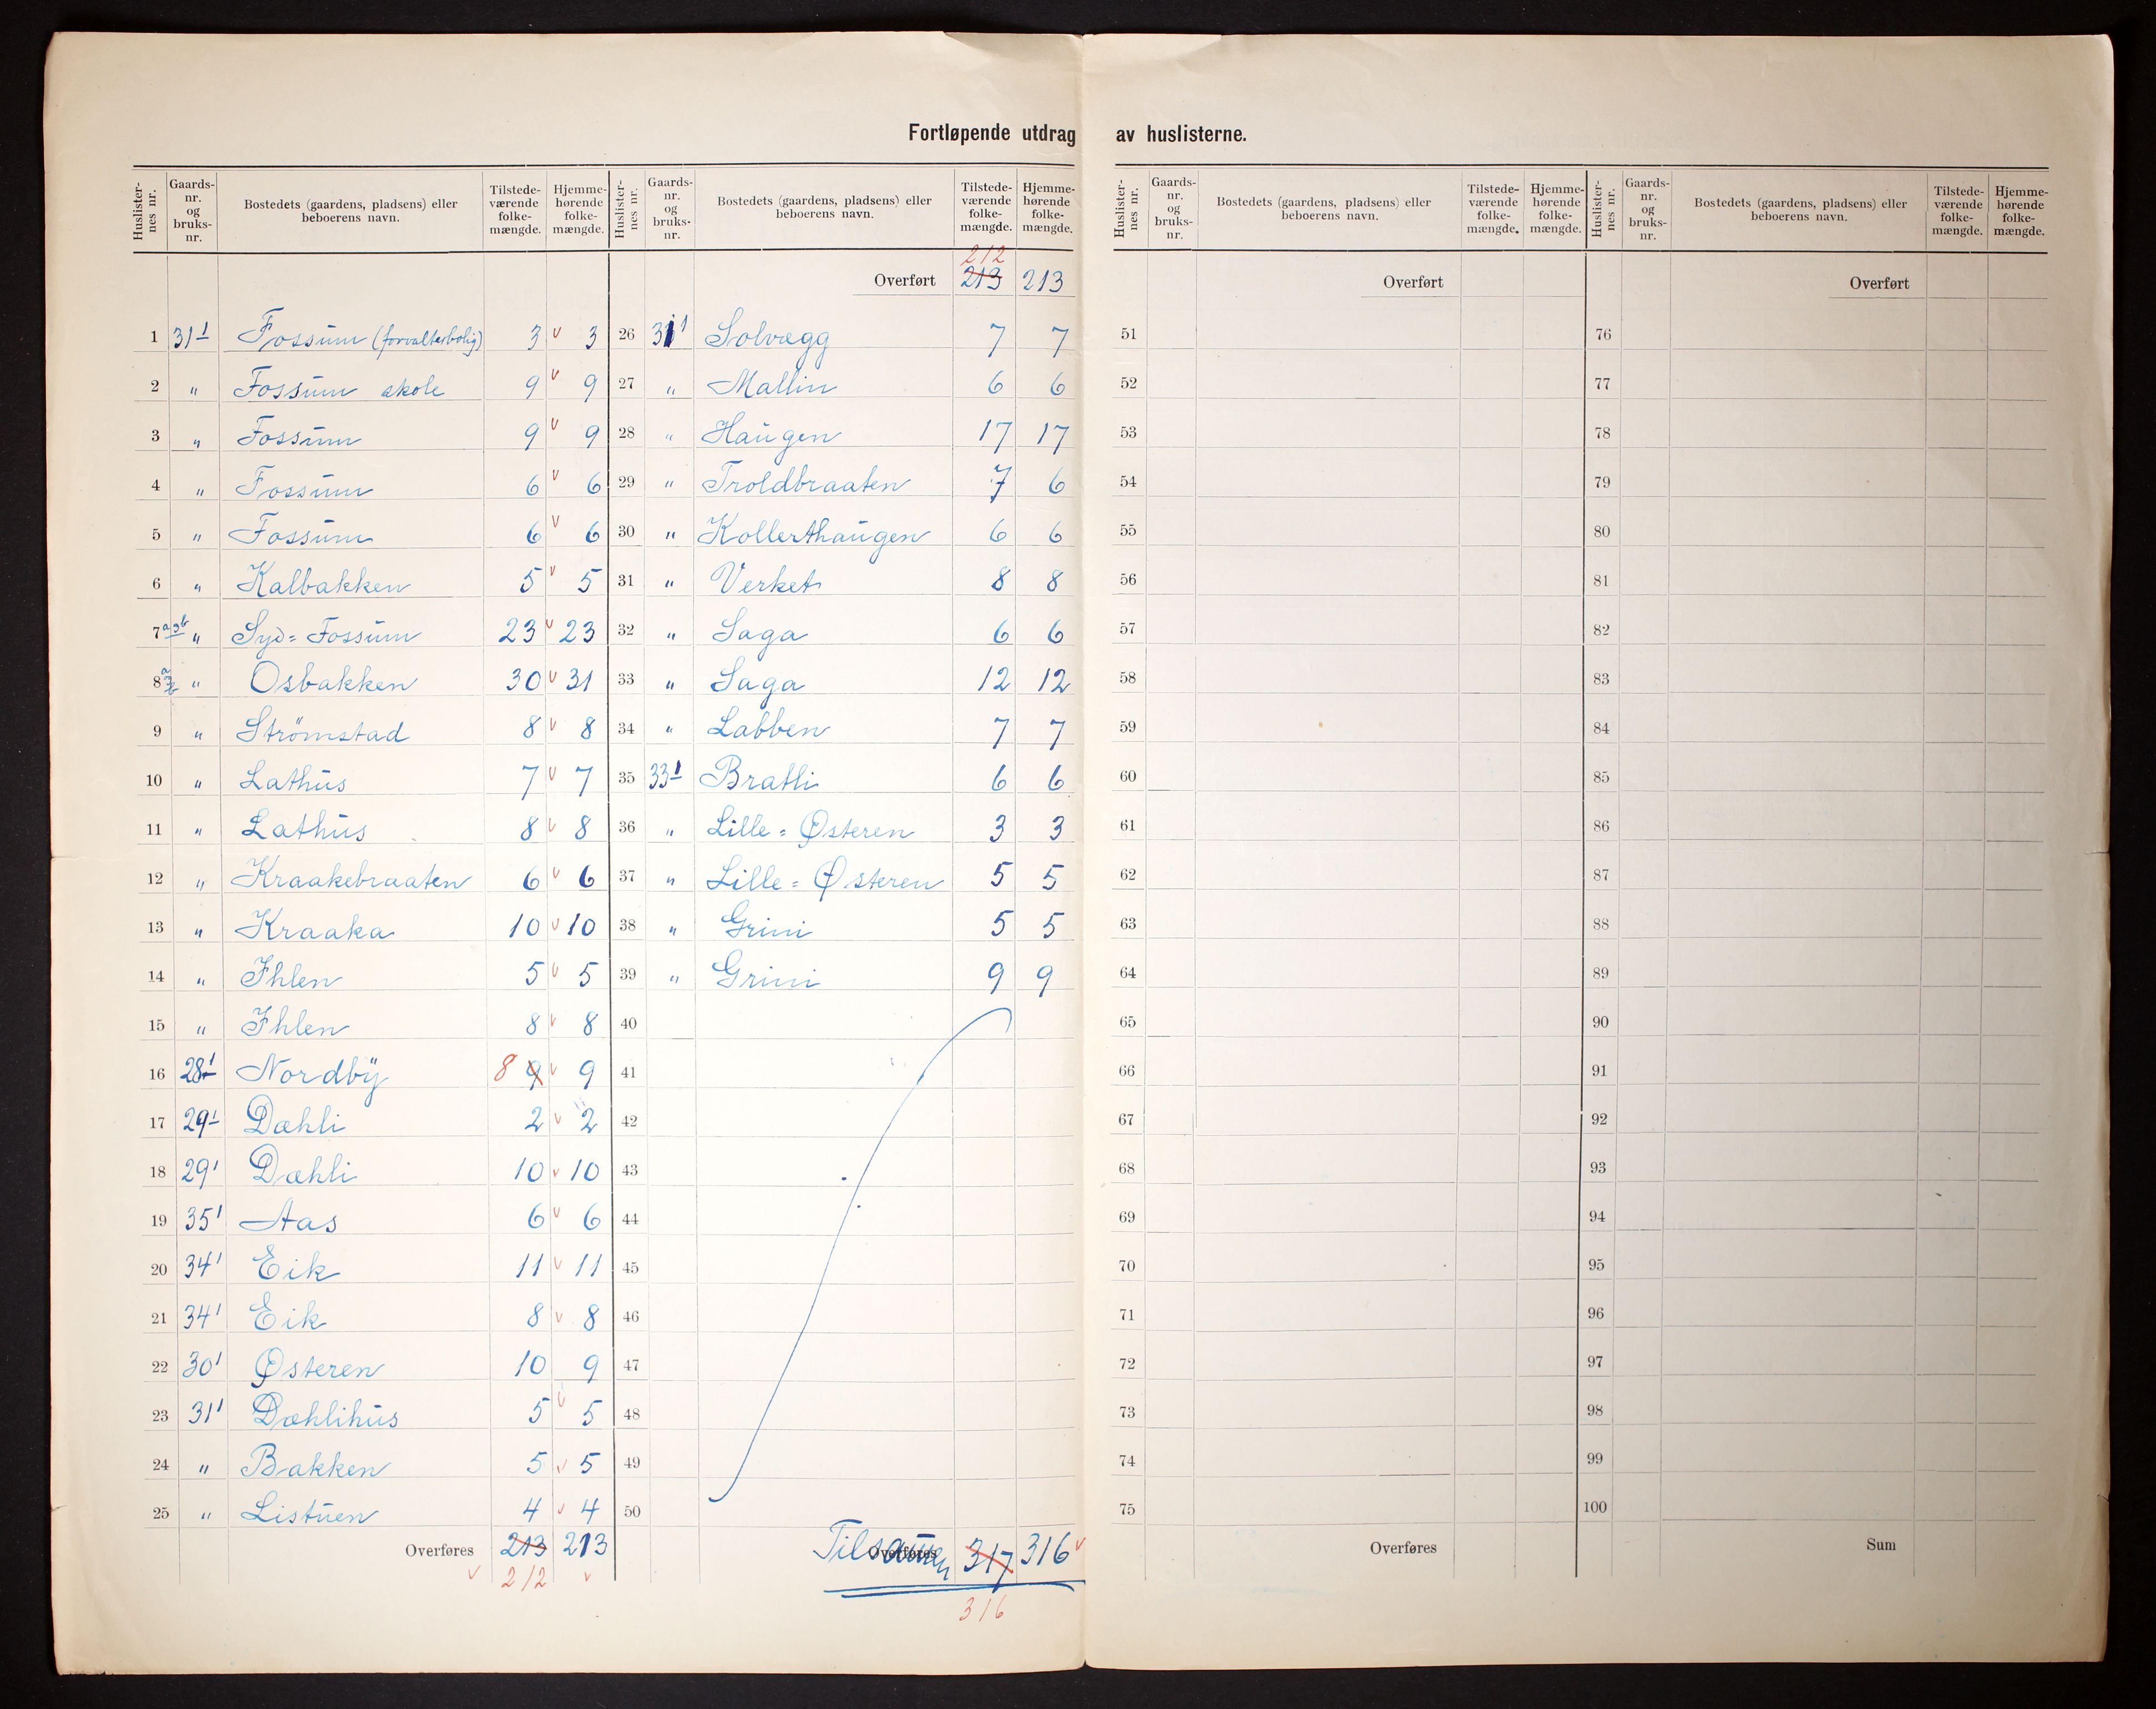 Fortløpende utdrag av huslisterne.
Huslister-nes nr. Gaards-nr. og bruks-nr. Bostedets (gaardens, pladsens) eller beboerens navn. Tilstede-værende folke-mængde. Hjemme-hørende folke-mængde.
1 31 1 Fossum (forvalterbolig) 3 v 3
2 " Fossum skole 9 v 9
3 " Fossum 9 v 9
4 " Fossum 6 v 6
5 " Fossum 6 v 6
6 " Kalbakken 5 v 5
7 a og b " Syd=Fossum 23 v 23
8 " Osbakken 30 v 31
9 " Strömstad 8 v 8
10 " Lathus 7 v 7
11 " Lathus 8 v 8
12 " Kraakebraaten 6 v 6
13 " Kraaka 10 v 10
14 " Ihlen 5 v 5
15 " Ihlen 8 v 8
16 28 1 Nordby 8 9 v 9
17 29 1 Dæhli 2 v 2
18 29 1 Dæhli 10 v 10
19 35 1 Aas 6 v 6
20 34 1 Eik 11 v 11
21 34 1 Eik 8 v 8
22 30 1 Østeren 10 9
23 31 1 Dæhlihus 5 v 5
24 " Bakken 5 v 5
25 " Listuen 4 v 4
Overføres 213 213
v 212 v
Huslister-nes nr. Gaards-nr. og bruks-nr. Bostedets (gaardens, pladsens) eller beboerens navn. Tilstede-værende folke-mængde. Hjemme-hørende folke-mængde.
212
Overført 213 213
26 31 1 Solvægg 7 7
27 " Mallin 6 6
28 " Haugen 17 17
29 " Troldbraaten 7 6
30 " Kollerthaugen 6 6
31 " Verket 8 8
32 " Saga 6 6
33 " Saga 12 12
34 " Labben 7 7
35 33 1 Bratli 6 6
36 " Lille=Østeren 3 3
37 " Lille=Østeren 5 5
38 " Grini 5 5
39 " Grini 9 9
40
41
42
43
44
45
46
47
48
49
50
Overføres Tilsammen 317 316 v
316
Huslister-nes nr. Gaards-nr. og bruks-nr. Bostedets (gaardens, pladsens) eller beboerens navn. Tilstede-værende folke-mængde. Hjemme-hørende folke-mængde.
Overført
51
52
53
54
55
56
57
58
59
60
61
62
63
64
65
66
67
68
69
70
71
72
73
74
75
Overføres
Huslister-nes nr. Gaards-nr. og bruks-nr. Bostedets (gaardens, pladsens) eller beboerens navn. Tilstede-værende folke-mængde. Hjemme-hørende folke-mængde.
Overført
76
77
78
79
80
81
82
83
84
85
86
87
88
89
90
91
92
93
94
95
96
97
98
99
100
Sum